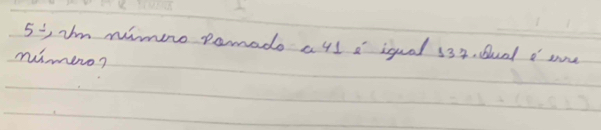 5-, Um número somado a 41 é igual 137. Qual é esse
número?